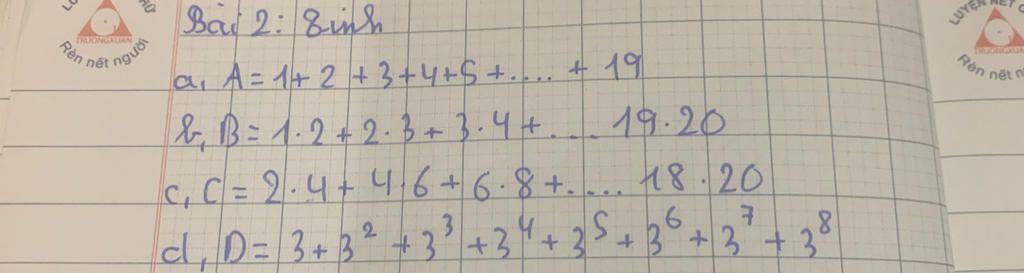 Bài 2: Tính
a, A = 1 + 2 + 3 + 4 + 5 + .... + 19
b, B = 1.2 + 2.3 + 3.4 + .... 19.20
c, C = 2.4 + 4.6 + 6.8 + .... 18.20
d, D = 3 + 3² + 3³ + 3⁴ + 3⁵ + 3⁶ + 3⁷ + 3⁸
TRUONGXUAN
Rèn nết người
LUYỆN NÉT C
TRUONGXUAN
Rèn nết n